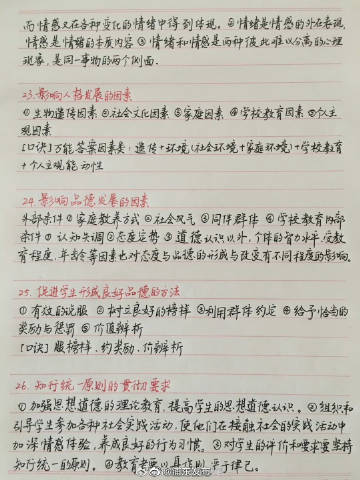 而情感又在各种变化的情绪中得到体现。②情绪是情感的外在表现,
情感是情绪的本质内容③情绪和情感是两种彼此难以分离的心理
现象,是同一事物的两个侧面.
23.影响人格发展的因素
①生物遗传因素②社会文化因素③家庭因素④学校教育因素⑤个人主
观因素
[口诀]万能答案因素类:遗传+环境(社会环境+家庭环境)+学校教育
+个人主观能动性
24.影响品德发展的因素
外部条件①家庭教养方式②社会风气③同伴群体④学校教育内部
条件①认知失调②态度定势③道德认识以外,个体的智力水平,受教
育程度,年龄等因素也对态度与品德的形成与改变有不同程度的影响.
25.促进学生形成良好品德的方法
①有效的说服②树立良好的榜样③利用群体约定④给予恰当的
奖励与惩罚⑤价值辨析
[口诀]服榜样.约奖励.价辨析
26.知行统一原则的贯彻要求
①加强思想道德的理论教育,提高学生的思想道德认识。②组织和
引导学生参加各种社会实践活动,使他们在接触社会的实践活动中
加深情感体验,养成良好的行为习惯。③对学生的评价和要求要坚持
知行统一的原则。④教育者要以身作则,严于律己。